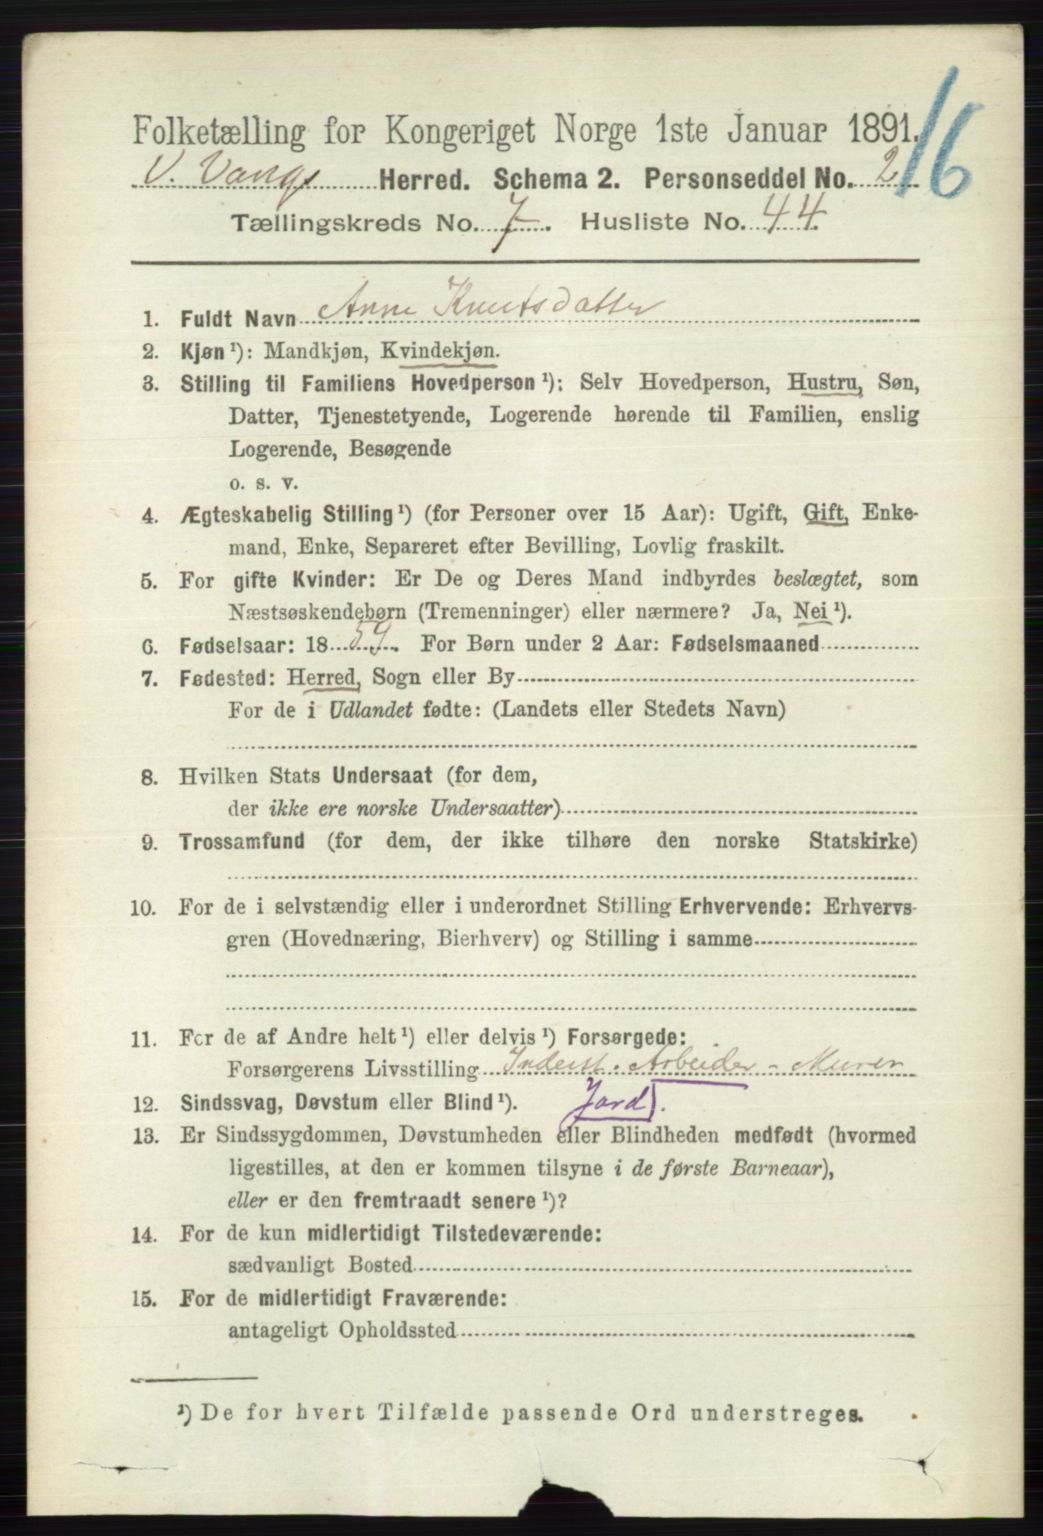 Folketælling for Kongeriget Norge 1ste Januar 1891.
16
V. Vangs Herred. Schema 2. Personseddel No. 2
Tællingskreds No. 7. Husliste No. 44
1. Fuldt Navn Anne Knutsdatter
2. Kjøn ¹): Mandkjøn, Kvindekjøn.
3. Stilling til Familiens Hovedperson ¹): Selv Hovedperson, Hustru, Søn,
Datter, Tjenestetyende, Logerende hørende til Familien, enslig
Logerende, Besøgende
o. s. v.
4. Ægteskabelig Stilling ¹) (for Personer over 15 Aar): Ugift, Gift, Enke-
mand, Enke, Separeret efter Bevilling, Lovlig fraskilt.
5. For gifte Kvinder: Er De og Deres Mand indbyrdes beslægtet, som
Næstsøskendebørn (Tremenninger) eller nærmere? Ja, Nei ¹).
6. Fødselsaar: 1859. For Børn under 2 Aar: Fødselsmaaned
7. Fødested: Herred, Sogn eller By
For de i Udlandet fødte: (Landets eller Stedets Navn)
8. Hvilken Stats Undersaat (for dem,
der ikke ere norske Undersaatter)
9. Trossamfund (for dem, der ikke tilhøre den norske Statskirke)
10. For de i selvstændig eller i underordnet Stilling Erhvervende: Erhvervs-
gren (Hovednæring, Bierhverv) og Stilling i samme
11. For de af Andre helt ¹) eller delvis ¹) Forsørgede:
Forsørgerens Livsstilling Inderst. Arbeider - Murer
12. Sindssvag, Døvstum eller Blind ¹). Jord.
13. Er Sindssygdommen, Døvstumheden eller Blindheden medfødt (hvormed
ligestilles, at den er kommen tilsyne i de første Barneaar),
eller er den fremtraadt senere ¹)?
14. For de kun midlertidigt Tilstedeværende:
sædvanligt Bosted
15. For de midlertidigt Fraværende:
antageligt Opholdssted
¹) De for hvert Tilfælde passende Ord understreges.